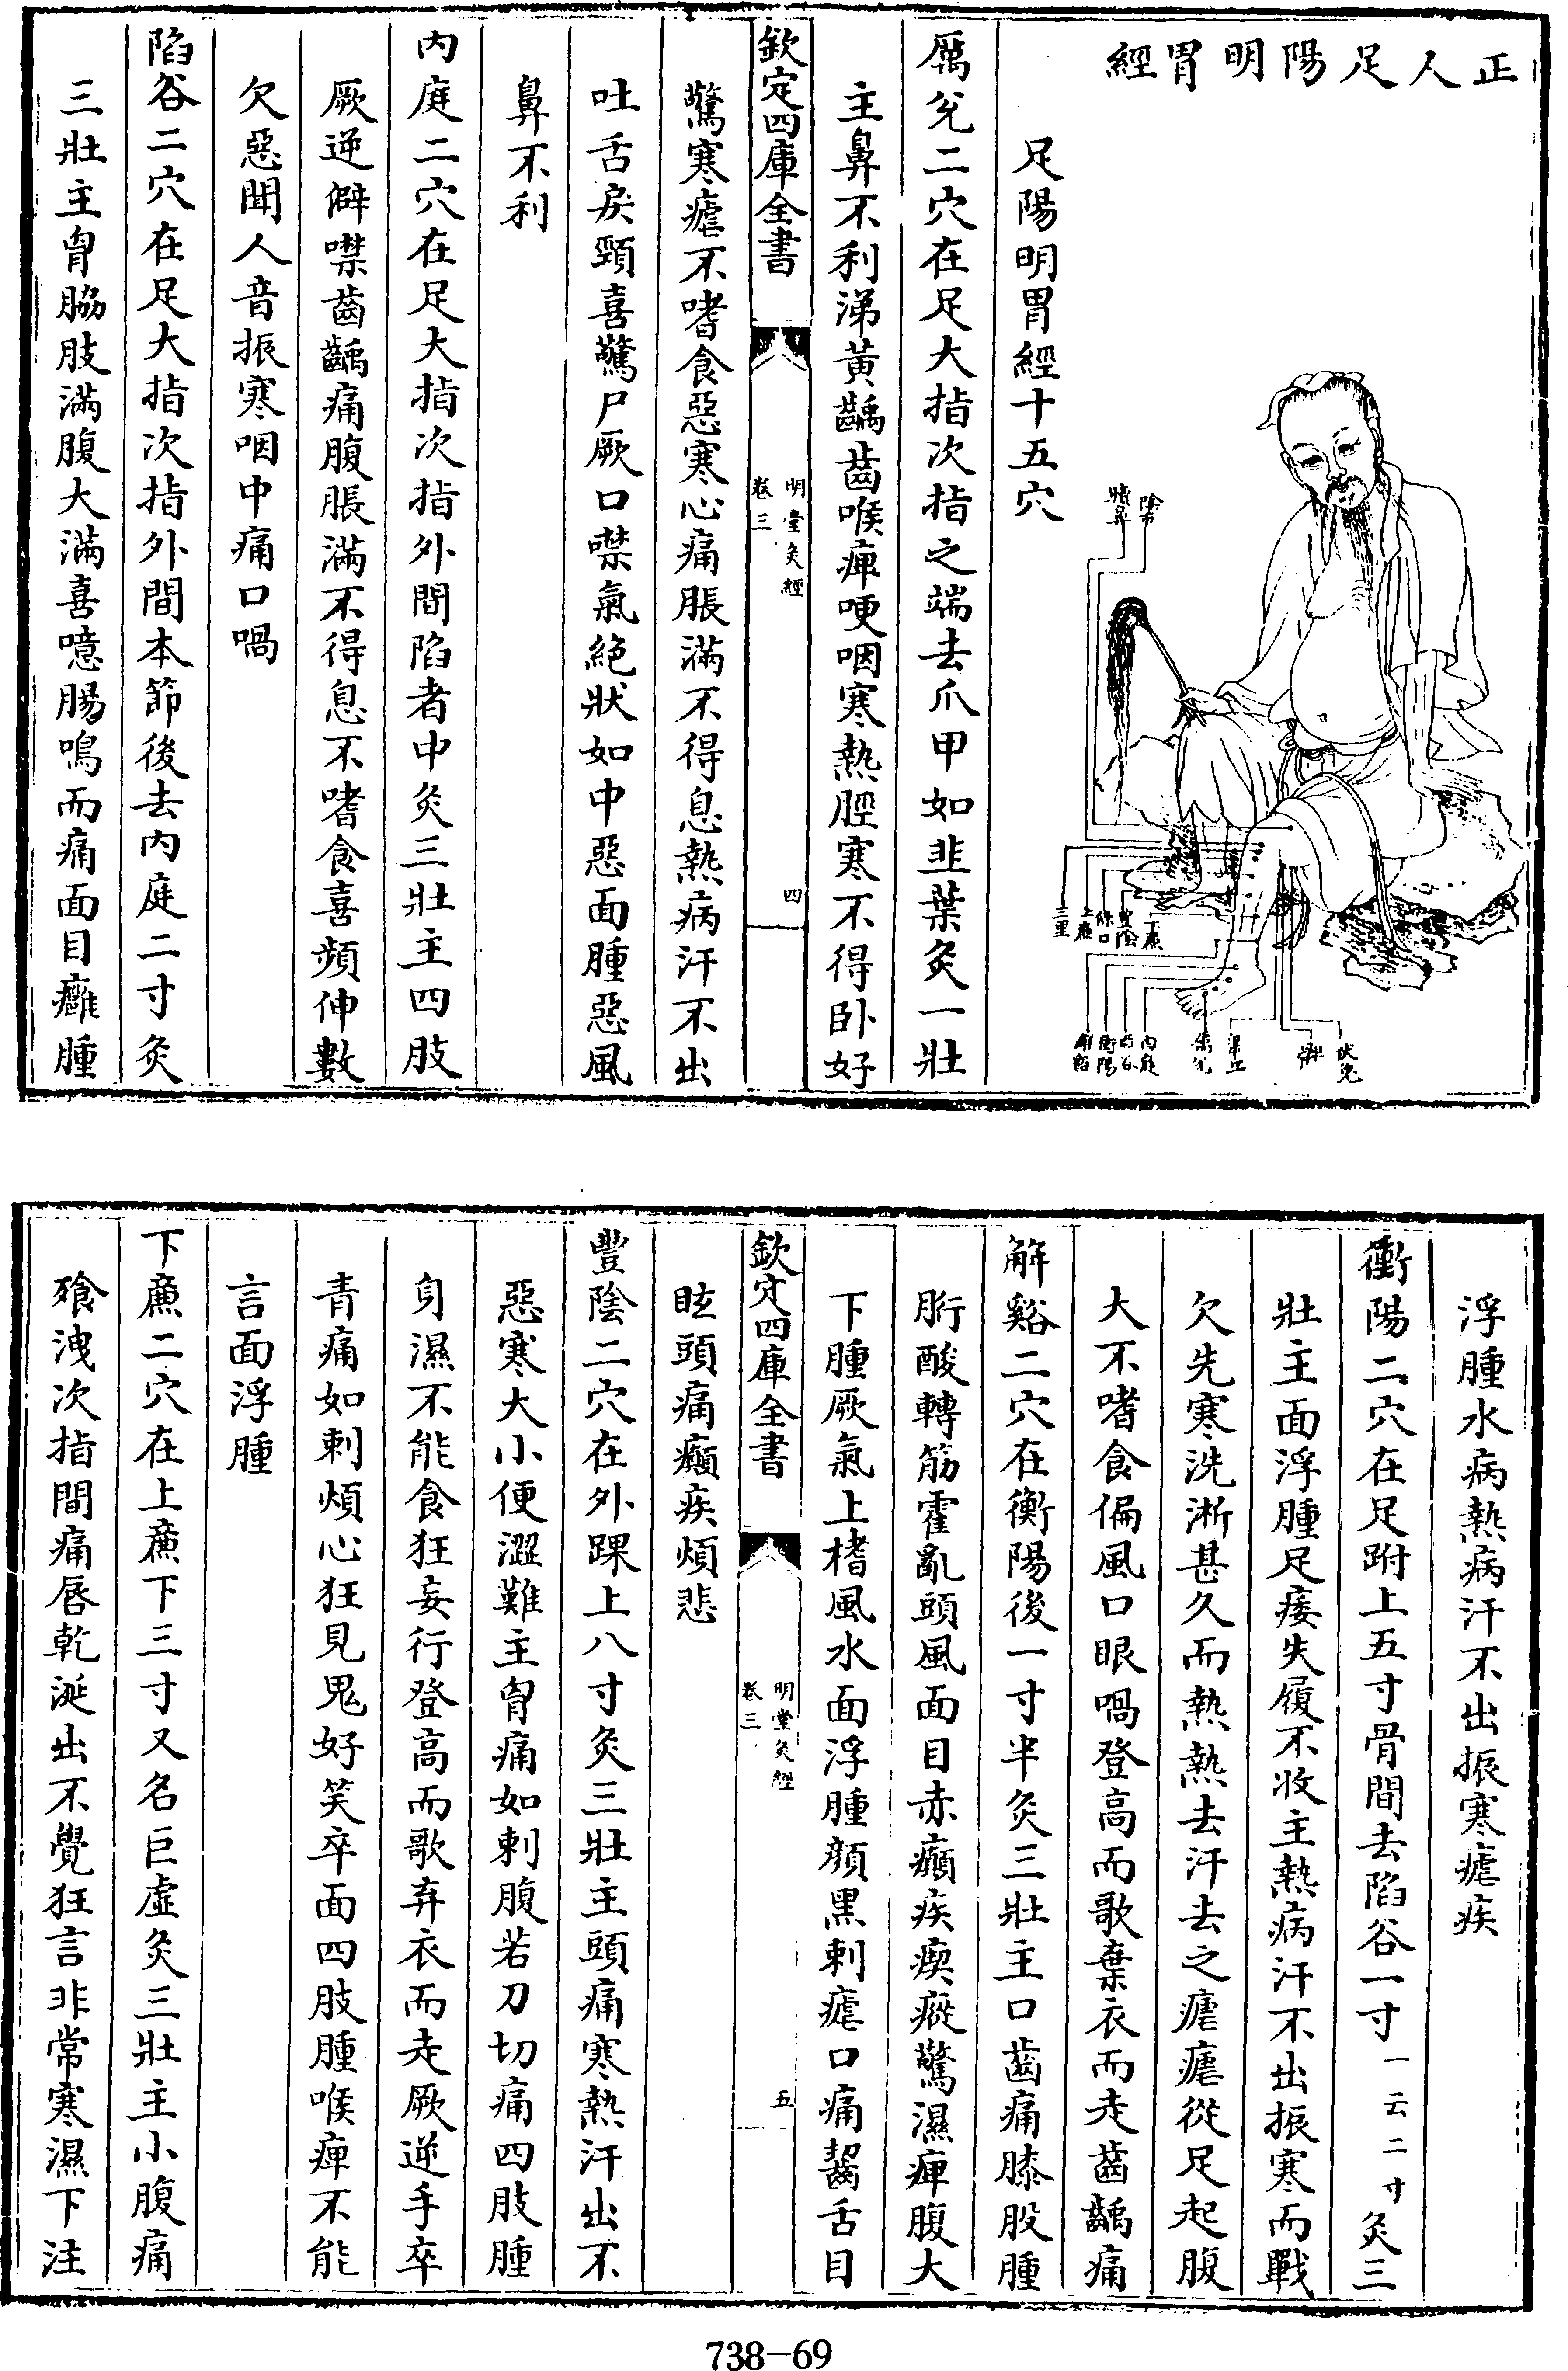 正人足陽明胃經
犢鼻
陰市
三里
上廉
條口
豐陰
下廉
解谿
衝陽
陷谷
内庭
厲兊
梁丘
髀
伏兔
足陽明胃經十五穴
厲兊二穴在足大指次指之端去爪甲如韭葉灸一壯
主鼻不利涕黄齲齒喉痺哽咽寒熱脛寒不得卧好
欽定四庫全書
明堂灸經
卷三
四
驚寒瘧不嗜食惡寒心痛脹滿不得息熱病汗不出
吐舌戾頸喜驚尸厥口噤氣絶狀如中惡面腫惡風
鼻不利
内庭二穴在足大指次指外間陷者中灸三壯主四肢
厥逆僻噤齒齲痛腹脹滿不得息不嗜食喜頻伸數
欠惡聞人音振寒咽中痛口喎
陷谷二穴在足大指次指外間本節後去内庭二寸灸
三壯主胷脇肢滿腹大滿喜噫腸鳴而痛面目癰腫
浮腫水病熱病汗不出振寒瘧疾
衝陽二穴在足跗上五寸骨間去陷谷一寸一云二寸灸三
壯主面浮腫足痿失履不收主熱病汗不出振寒而戰
欠先寒洗淅甚久而熱熱去汗去之瘧瘧從足起腹
大不嗜食偏風口眼喎登高而歌棄衣而走齒齲痛
解谿二穴在衝陽後一寸半灸三壯主口齒痛膝股腫
胻酸轉筋霍亂頭風面目赤癲疾瘈瘲驚濕痺腹大
下腫厥氣上榰風水面浮腫顔黑刺瘧口痛齧舌目
欽定四庫全書
明堂灸經
卷三
五
眩頭痛癲疾煩悲
豐陰二穴在外踝上八寸灸三壯主頭痛寒熱汗出不
惡寒大小便澀難主胷痛如刺腹若刀切痛四肢腫
身濕不能食狂妄行登高而歌弃衣而走厥逆手卒
青痛如刺煩心狂見鬼好笑卒面四肢腫喉痺不能
言面浮腫
下廉二穴在上廉下三寸又名巨虛灸三壯主小腹痛
飱洩次指間痛唇乾涎出不覺狂言非常寒濕下注
738-69